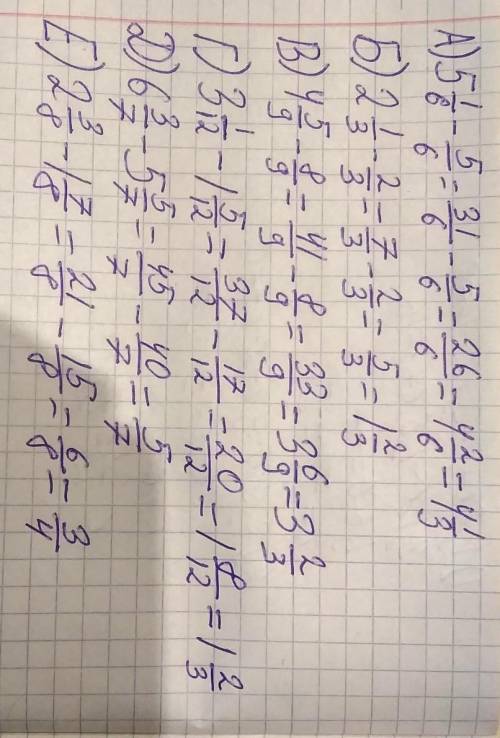 А) 5 1/6 - 5/6 = 31/6 - 5/6 = 26/6 = 4 2/6 = 4 1/3
Б) 2 1/3 - 2/3 = 7/3 - 2/3 = 5/3 = 1 2/3
В) 4 5/9 - 8/9 = 41/9 - 8/9 = 33/9 = 3 6/9 = 3 2/3
Г) 3 1/12 - 1 5/12 = 37/12 - 17/12 = 20/12 = 1 8/12 = 1 2/3
Д) 6 3/7 - 5 5/7 = 45/7 - 40/7 = 5/7
Е) 2 3/8 - 1 7/8 = 21/8 - 15/8 = 6/8 = 3/4